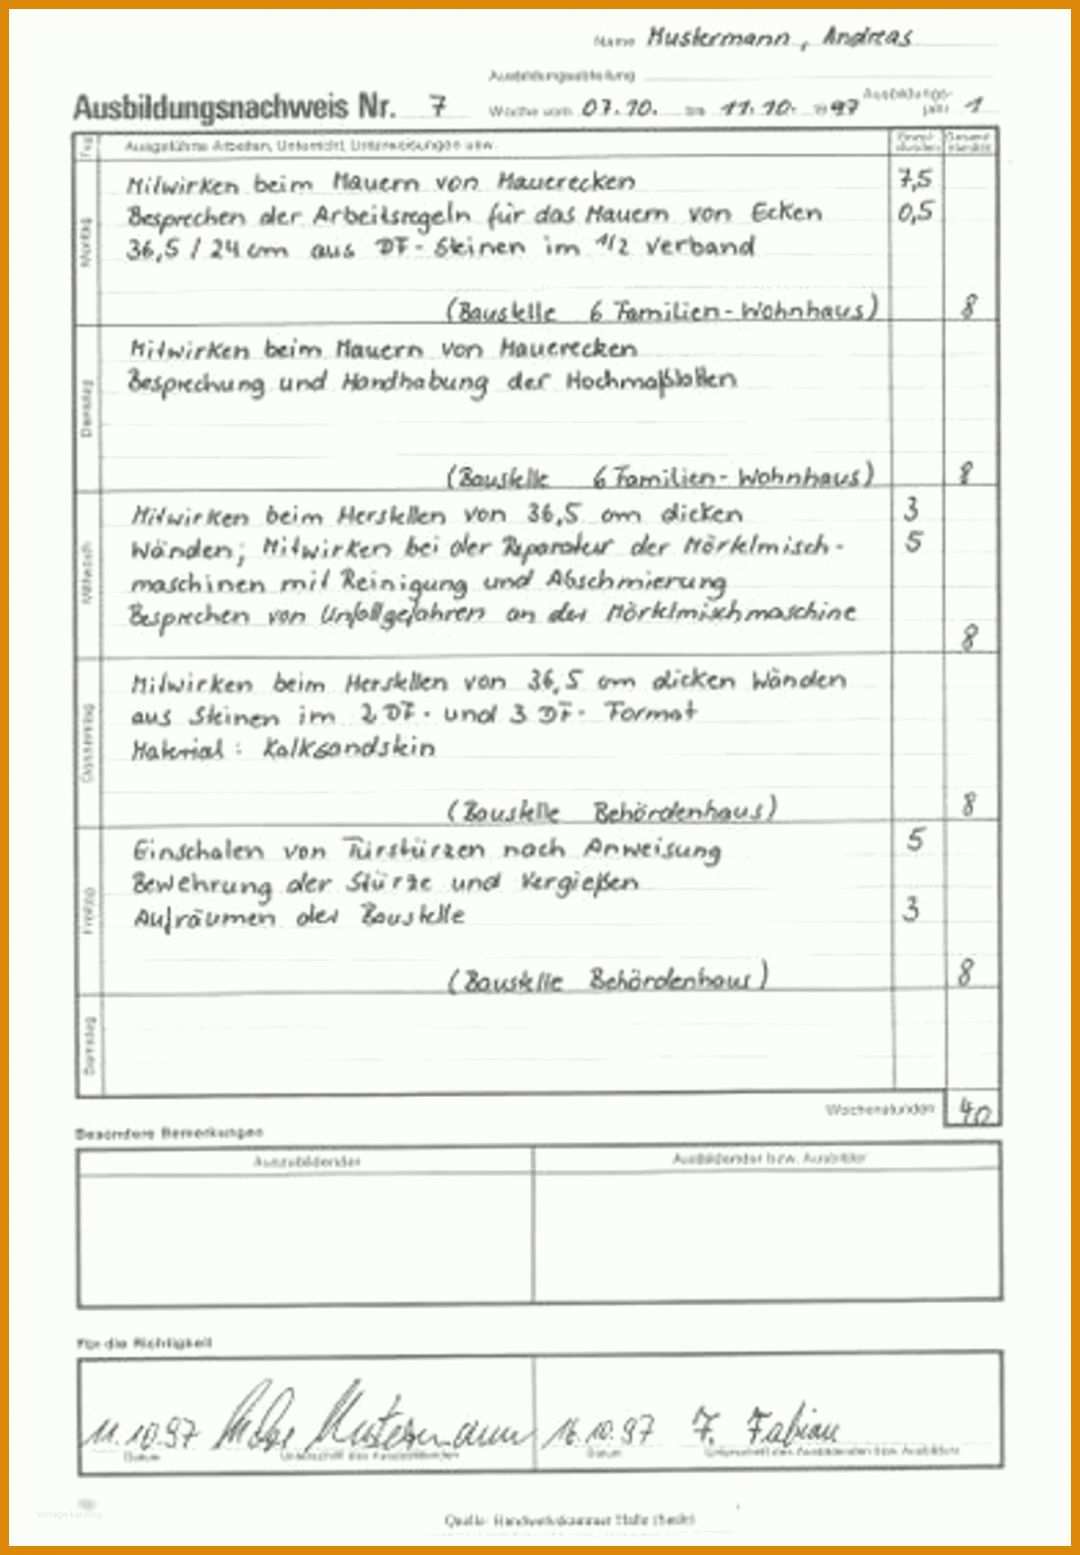 Name Mustermann, Andreas
Ausbildungsabteilung
Ausbildungsnachweis Nr. 7 Woche vom 07.10. bis 11.10. 1997 Ausbildungs-
jahr 1
Tag Ausgeführte Arbeiten, Unterricht, Unterweisungen usw. Einzel-stunden Gesamt-stunden
Montag
Mitwirken beim Mauern von Mauerecken 7,5
Besprechen der Arbeitsregeln für das Mauern von Ecken 0,5
36,5 / 24 cm aus DF-Steinen im 1/2 Verband
(Baustelle 6 Familien-Wohnhaus) 8
Dienstag
Mitwirken beim Mauern von Mauerecken
Besprechung und Handhabung der Hochmaßlatten
(Baustelle 6 Familien-Wohnhaus) 8
Mittwoch
Mitwirken beim Herstellen von 36,5 cm dicken 3
Wänden; Mitwirken bei der Reparatur der Mörtelmisch- 5
maschinen mit Reinigung und Abschmierung
Besprechen von Unfallgefahren an der Mörtelmischmaschine
8
Donnerstag
Mitwirken beim Herstellen von 36,5 cm dicken Wänden
aus Steinen im 2 DF- und 3 DF- Format
Material: Kalksandstein
(Baustelle Behördenhaus) 8
Freitag
Einschalen von Türstürzen nach Anweisung 5
Bewehrung der Stürze und Vergießen
Aufräumen der Baustelle 3
(Baustelle Behördenhaus) 8
Samstag
Wochenstunden 40
Besondere Bemerkungen
Auszubildender Ausbildender bzw. Ausbilder
Für die Richtigkeit
11.10.97 Andreas Mustermann 16.10.97 F. Fabian
Datum Unterschrift des Auszubildenden Datum Unterschrift des Ausbildenden bzw. Ausbilders
Quelle: Handwerkskammer Halle (Saale)